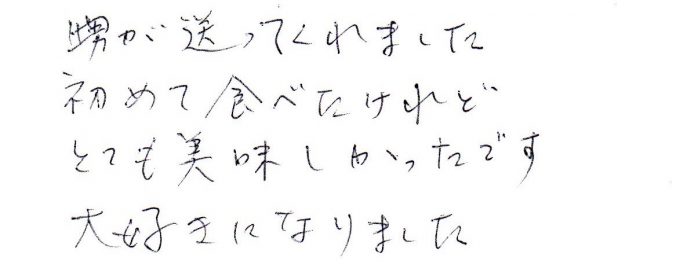 甥が送ってくれました
初めて食べたけれど
とても美味しかったです
大好きになりました